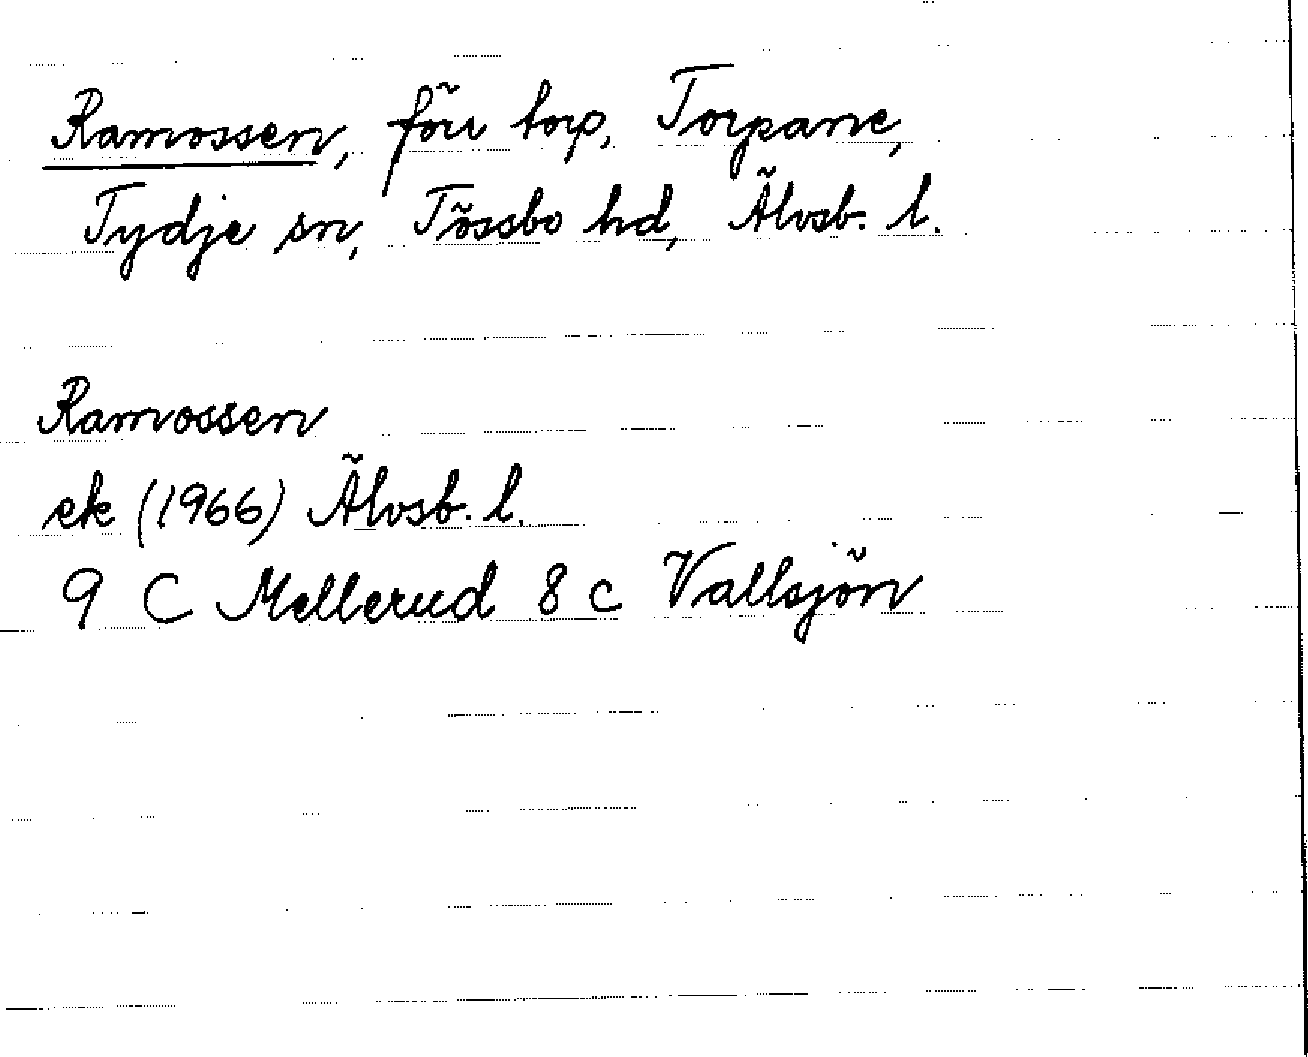 Ramossen, förr torp, Torpane,
Tydje sn, Tössbo hd, Älvsb. l.
Ramossen
ek (1966) Älvsb. l.
9 C Mellerud 8 c Vallsjön